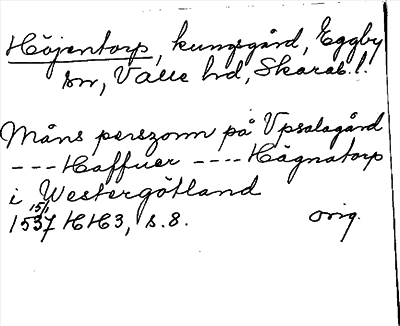 Höjentorp, kungsgård, Eggby
sn, Valle hd, Skarab. l.
Måns perszonn på Vpsalagård
--- Haffuer ---- Högnatorp
i Westergötland
15/1
1537 HH3, s. 8. orig.